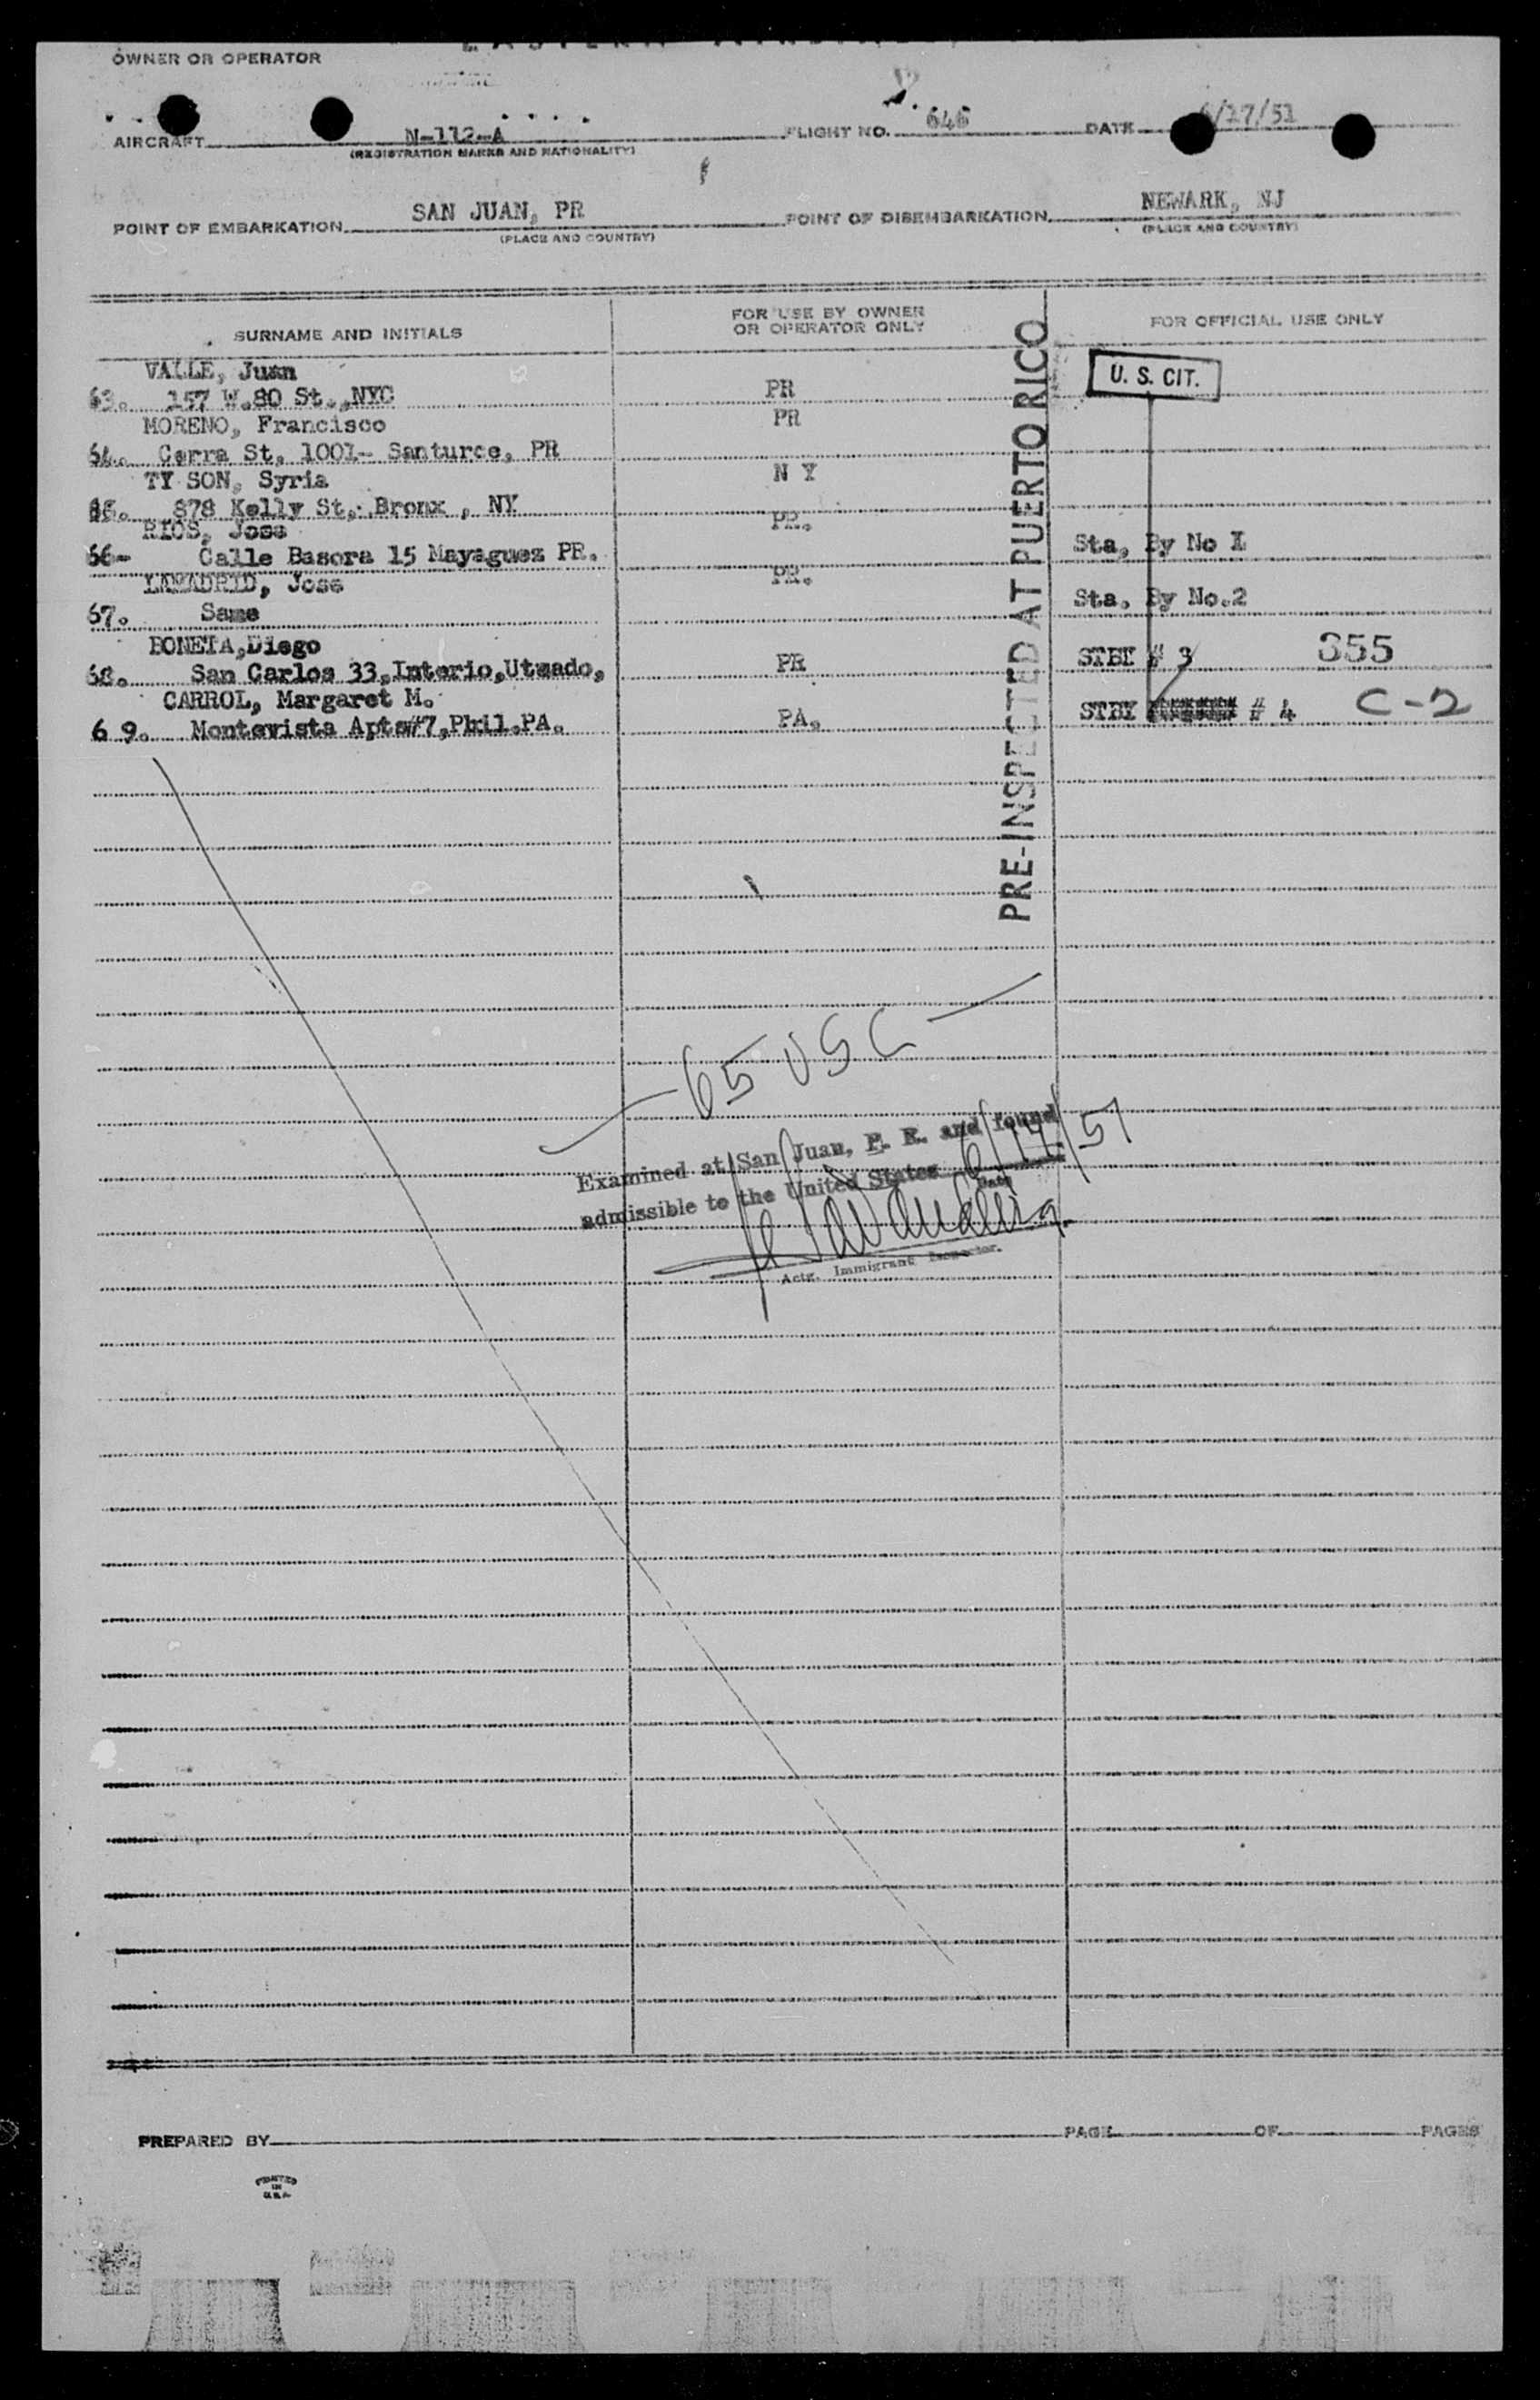 EASTERN
OWNER OR OPERATOR
AIRCRAFT N-112-A FLIGHT NO. 646 DATE 6/17/51
(REGISTRATION MARKS AND NATIONALITY)
POINT OF EMBARKATION SAN JUAN, PR POINT OF DISEMBARKATION NEWARK, NJ
(PLACE AND COUNTRY) (PLACE AND COUNTRY)
SURNAME AND INITIALS FOR USE BY OWNER OR OPERATOR ONLY FOR OFFICIAL USE ONLY
U. S. CIT.
PRE-INSPECTED AT PUERTO RICO
VALLE, Juan
63. 157 W.80 St., NYC PR
MORENO, Francisco PR
64. Cerra St, 1001- Santurce, PR
TY SON, Syria N Y
65. 878 Kelly St, Bronx, NY
RIOS, Jose PR.
66- Calle Basora 15 Mayaguez PR. Sta, By No 1
LAMADRID, Jose PR.
67. Same Sta, By No.2
BONETA, Diego
68. San Carlos 33, Interio, Utuado, PR STBY # 3 355
CARROL, Margaret M.
69. Montevista Apts#7, Phil. PA. PA. STBY # 4 C-2
65 USC
Examined at San Juan, P. R. and found
admissible to the United States 6/17/51
Date
Actg. Immigrant Inspector.
PREPARED BY PAGE OF PAGES
PRINTED
IN
U.S.A.